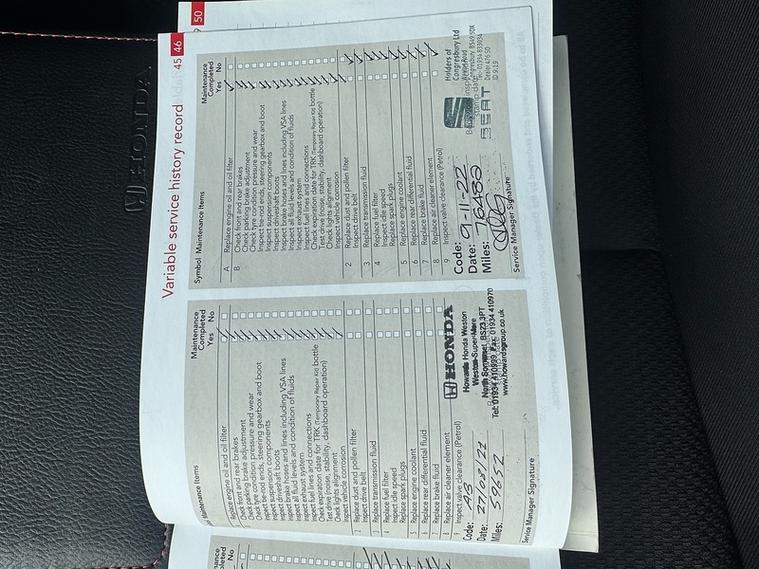 HONDA
50
45 46
Variable service history record
Symbol Maintenance Items
Maintenance
Completed
Yes No
A Replace engine oil and oil filter
B Check front and rear brakes
Check parking brake adjustment
Check tyre condition pressure and wear
Inspect tie-rod ends, steering gearbox and boot
Inspect suspension components
Inspect driveshaft boots
Inspect brake hoses and lines including VSA lines
Inspect all fluid levels and condition of fluids
Inspect exhaust system
Inspect fuel lines and connections
Check expiration date for TRK (Temporary Repair Kit) bottle
Test drive (noise, stability, dashboard operation)
Check lights alignment
Inspect vehicle corrosion
2 Replace dust and pollen filter
Inspect drive belt
3 Replace transmission fluid
4 Replace fuel filter
Inspect idle speed
Replace spark plugs
5 Replace engine coolant
6 Replace rear differential fluid
7 Replace brake fluid
8 Replace air cleaner element
9 Inspect valve clearance (Petrol)
Code:
Date: 9-11-22
Miles: 76482
Service Manager Signature
Holders of
Congresbury Ltd
Bristol Road
Congresbury BS49
SEAT
Maintenance Items
Maintenance
Completed
Yes No
Replace engine oil and oil filter
Check front and rear brakes
Check parking brake adjustment
Check tyre condition pressure and wear
Inspect tie-rod ends, steering gearbox and boot
Inspect suspension components
Inspect driveshaft boots
Inspect brake hoses and lines including VSA lines
Inspect all fluid levels and condition of fluids
Inspect exhaust system
Inspect fuel lines and connections
Check expiration date for TRK (Temporary Repair Kit) bottle
Test drive (noise, stability, dashboard operation)
Check lights alignment
Inspect vehicle corrosion
2 Replace dust and pollen filter
Inspect drive belt
3 Replace transmission fluid
4 Replace fuel filter
Inspect idle speed
Replace spark plugs
5 Replace engine coolant
6 Replace rear differential fluid
7 Replace brake fluid
8 Replace air cleaner element
9 Inspect valve clearance (Petrol)
Code: AB
Date: 27/08/22
Miles: 59652
Service Manager Signature
HONDA
Howards Honda Weston
Weston-Super-Mare
North Somerset, BS23 3PT
Tel: 01934 410999 Fax: 01934 410970
www.howardsgroup.co.uk
Yes No